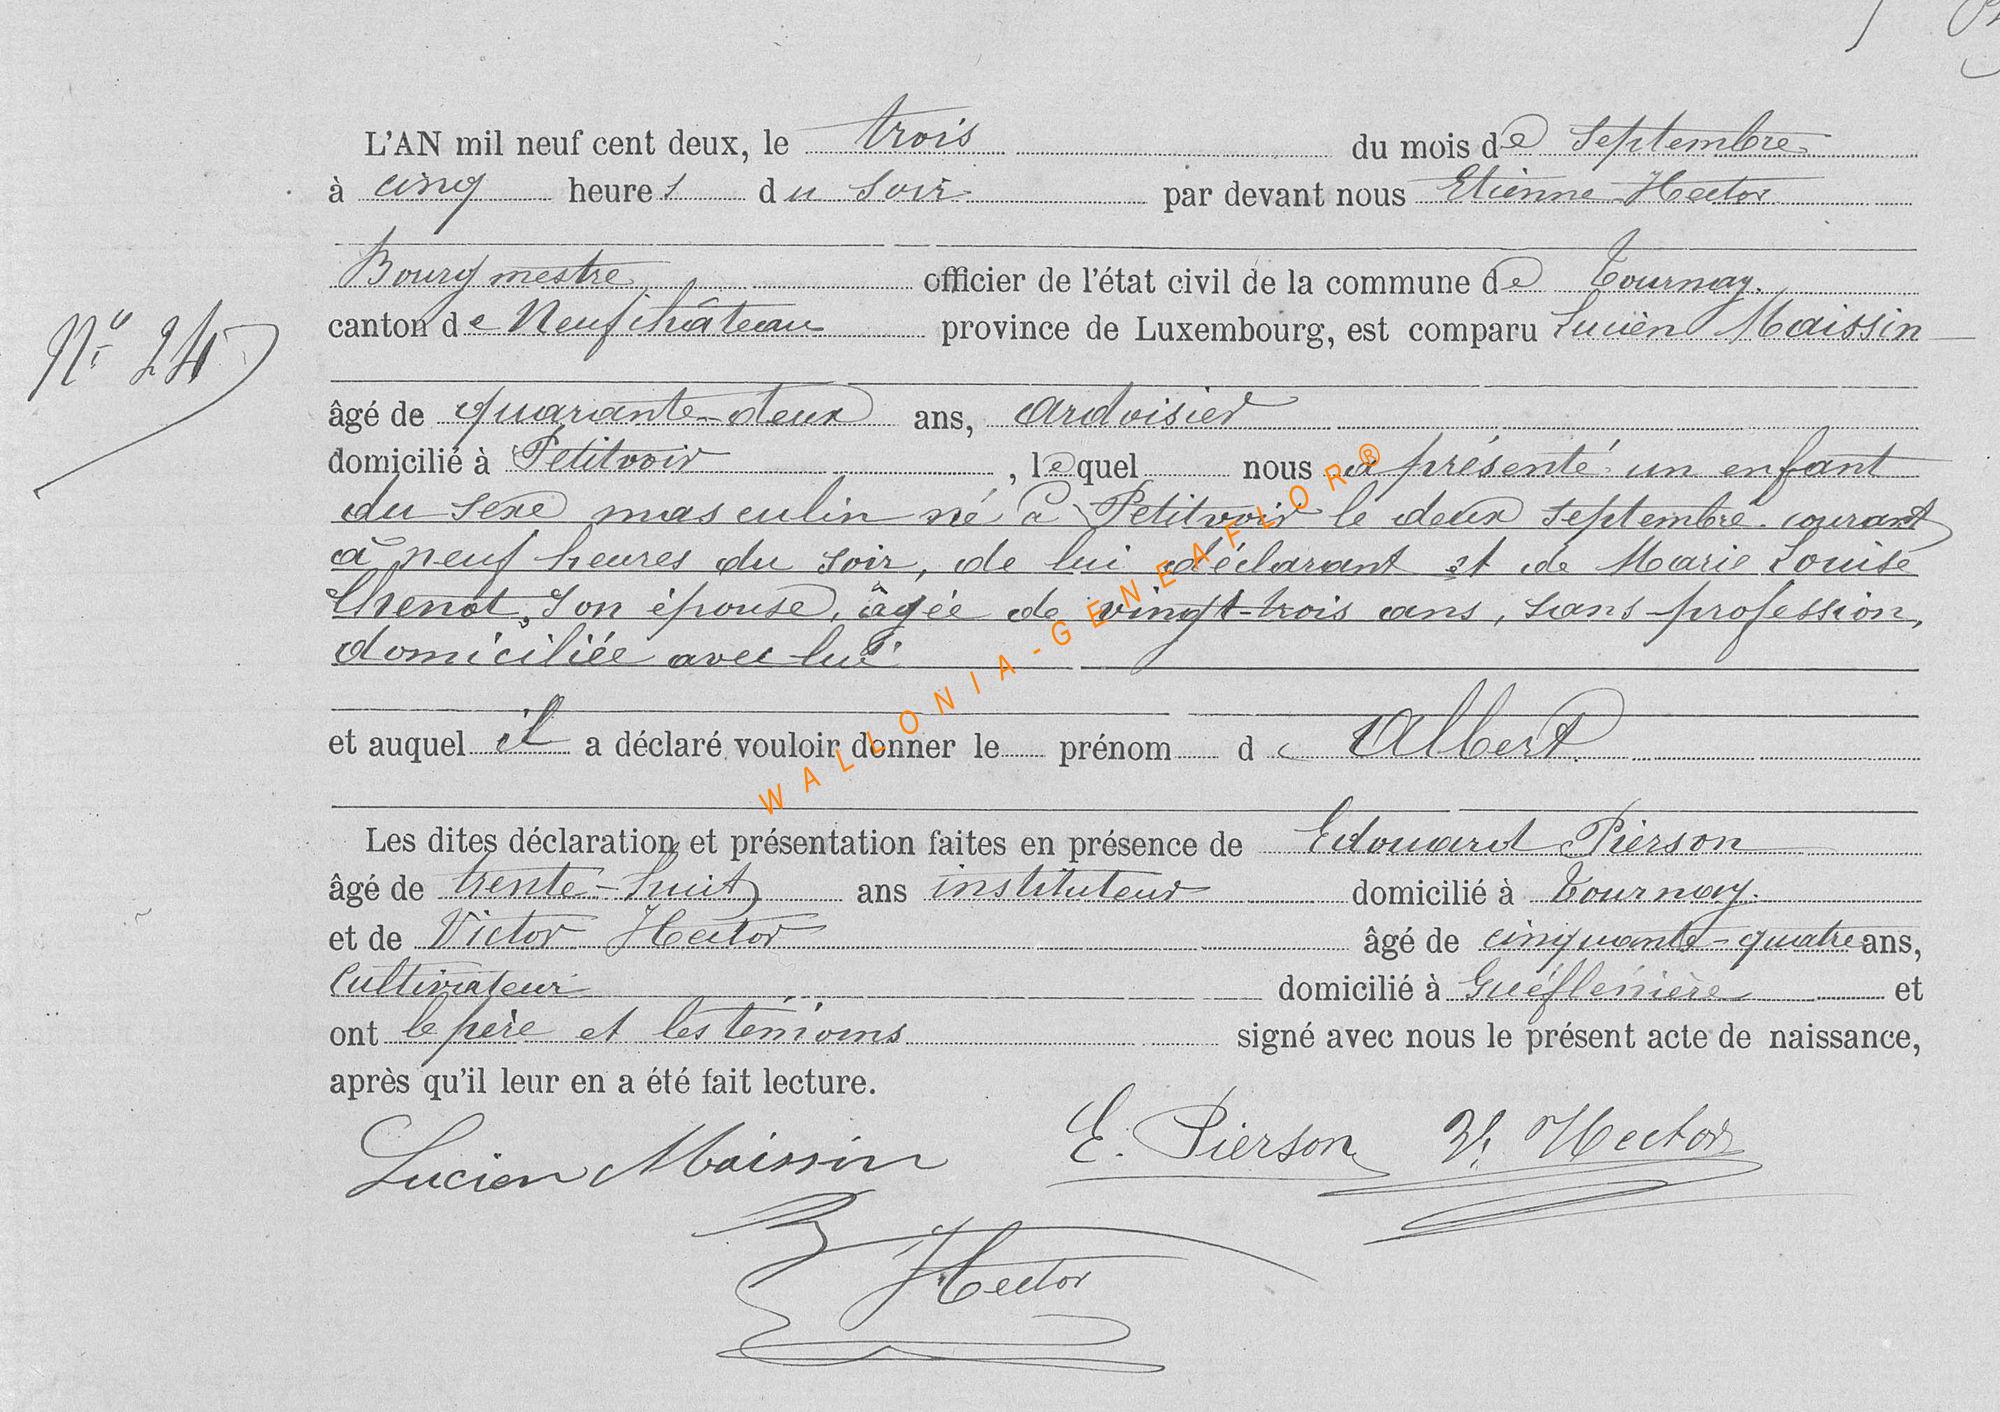 L'AN mil neuf cent deux, le trois du mois de Septembre
à cinq heures du soir par devant nous Etienne Hector
Bourgmestre officier de l'état civil de la commune de Tournay.
canton de Neufchâteau province de Luxembourg, est comparu Lucien Maissin
Nº 24
âgé de quarante-deux ans, ardoisier
domicilié à Petitvoir, lequel nous a présenté un enfant
du sexe masculin né à Petitvoir le deux septembre courant
à neuf heures du soir, de lui déclarant et de Marie Louise
Chenot, son épouse, âgée de vingt-trois ans, sans profession,
domiciliée avec lui
et auquel il a déclaré vouloir donner le prénom de Albert.
Les dites déclaration et présentation faites en présence de Edouard Pierson
âgé de trente-huit ans instituteur domicilié à Tournay.
et de Victor Hector âgé de cinquante-quatre ans,
cultivateur domicilié à et
ont le père et les témoins signé avec nous le présent acte de naissance,
après qu'il leur en a été fait lecture.
Lucien Maissin E. Pierson V. Hector
Hector
WALLONIA-GENEAFLOR®